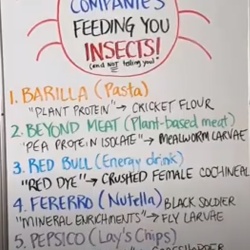 COMPANIES
FEEDING YOU
INSECTS!
(and NOT telling you)
1. BARILLA (Pasta)
"PLANT PROTEIN" → CRICKET FLOUR
2. BEYOND MEAT (Plant-based meat)
"PEA PROTEIN ISOLATE" → MEALWORM LARVAE
3. RED BULL (Energy drink)
"RED DYE" → CRUSHED FEMALE COCHINEAL
4. FERERRO (Nutella) BLACK SOLDIER
"MINERAL ENRICHMENTS" → FLY LARVAE
5. PEPSICO (Lay's Chips)